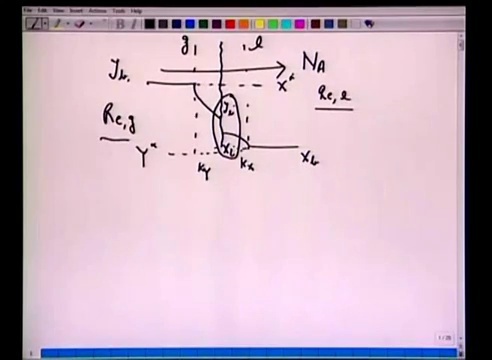 File Edit View Insert Actions Tools Help
g l
y_b N_A
x*
Re,l
y_i
Re,g
y* x_i x_b
k_y k_x
1/25